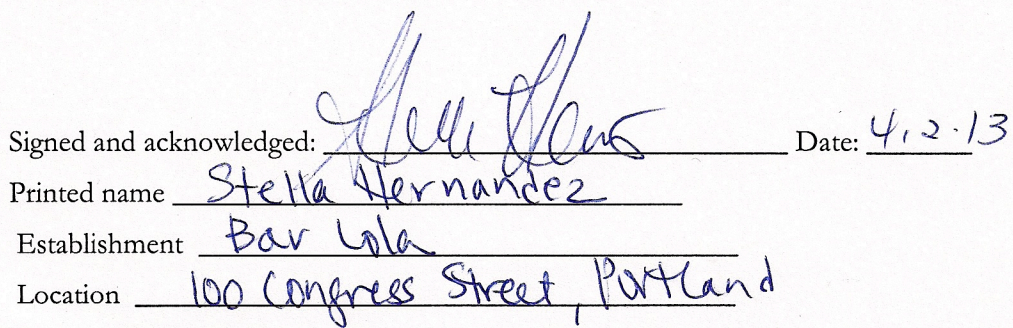 Signed and acknowledged: Date: 4.2.13
Printed name Stella Hernandez
Establishment Bar Lola
Location 100 Congress Street, Portland